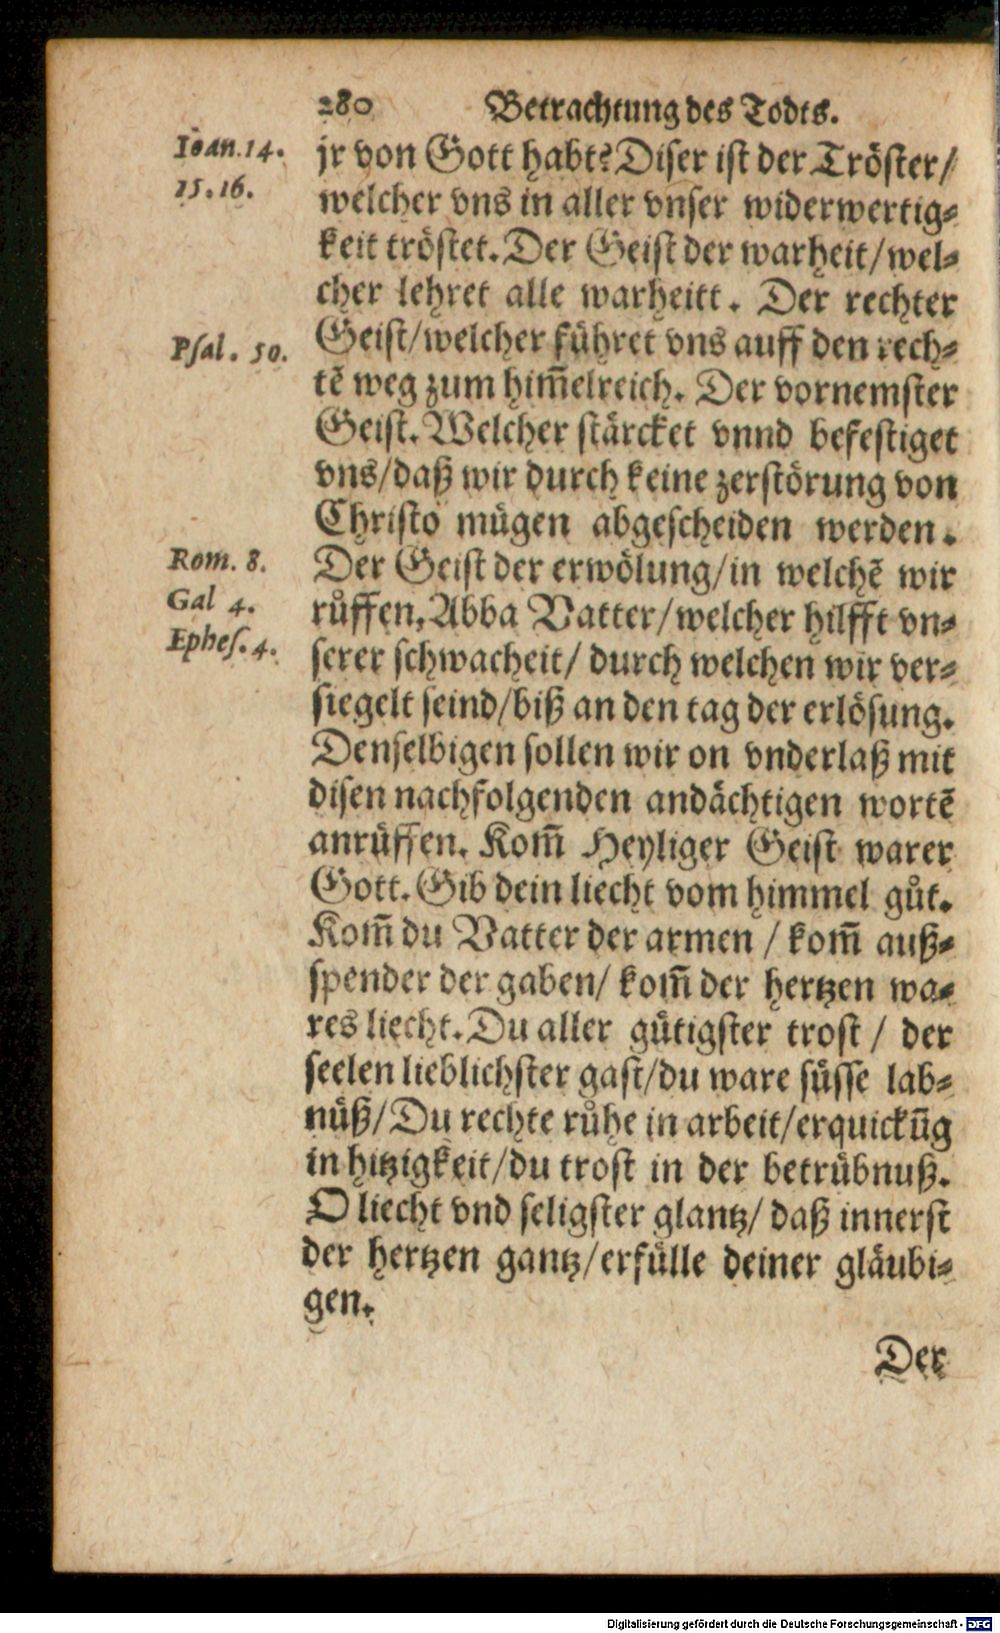 280 Betrachtung des Todts.
Ioan. 14.
15. 16.
jr von Gott habt? Diser ist der Tröster/
welcher vns in aller vnser widerwertig-
keit tröstet. Der Geist der warheit/wel-
cher lehret alle warheitt. Der rechter
Psal. 50.
Geist/welcher führet vns auff den rech-
tẽ weg zum him̃elreich. Der vornemster
Geist. Welcher stärcket vnnd befestiget
vns/daß wir durch keine zerstörung von
Christo mügen abgescheiden werden.
Rom. 8.
Gal 4.
Ephes. 4.
Der Geist der erwölung/in welchẽ wir
růffen, Abba Vatter/welcher hilfft vn-
serer schwacheit/ durch welchen wir ver-
siegelt seind/biß an den tag der erlösung.
Denselbigen sollen wir on vnderlaß mit
disen nachfolgenden andächtigen wortẽ
anrüffen. Kom̃ Heyliger Geist warer
Gott. Gib dein liecht vom himmel gůt.
Kom̃ du Vatter der armen / kom̃ auß-
spender der gaben/ kom̃ der hertzen wa-
res liecht. Du aller gütigster trost / der
seelen lieblichster gast/du ware süsse lab-
nüß/Du rechte růhe in arbeit/erquickũg
in hitzigkeit/du trost in der betrübnuß.
O liecht vnd seligster glantz/ daß innerst
der hertzen gantz/erfülle deiner gläubi-
gen.
Der
Digitalisierung gefördert durch die Deutsche Forschungsgemeinschaft - DFG